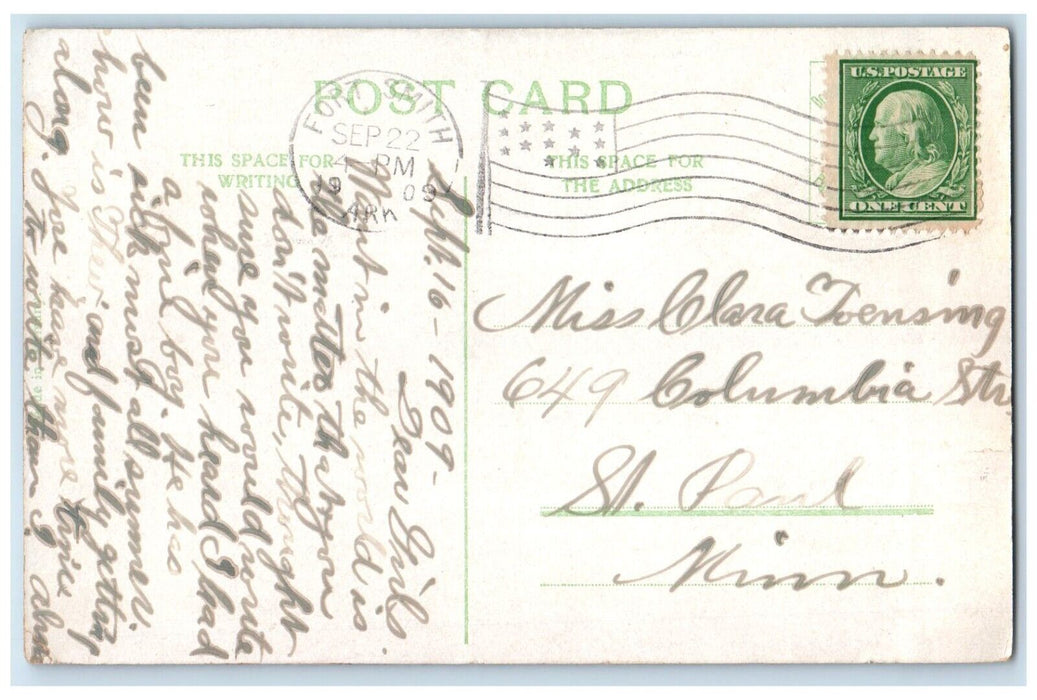 POST CARD
THIS SPACE FOR
WRITING
THIS SPACE FOR
THE ADDRESS
FORT SMITH
SEP 22
4 - PM
19 09
ARK
U.S. POSTAGE
ONE CENT
Miss Clara Toensing
649 Columbia Str.
St. Paul
Minn.
Sept. 16 - 1909 -
Dear Girls
What in the world is
the matter that you
don't write, thought
sure you would write
when you heard I had
a fine boy. He has
been sick most all summer.
how is and family getting
along. you have more time
to write than I